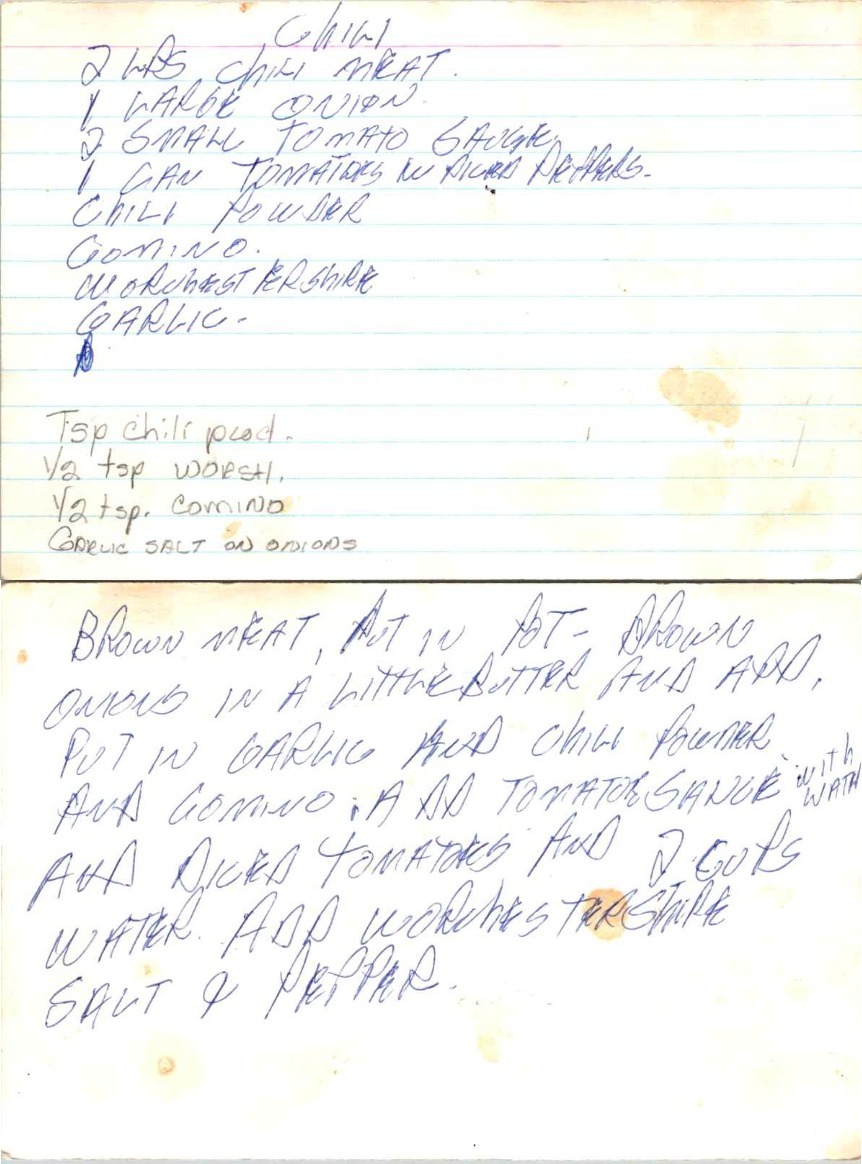 CHILI
2 LBS CHILI MEAT.
1 LARGE ONION.
2 SMALL TOMATO SAUCE.
1 CAN TOMATOES W DICED PEPPERS.
CHILI POWDER
COMINO.
WORCHESTERSHIRE
GARLIC.
Tsp chili powd.
1/2 tsp WORSH.
1/2 tsp. COMINO
GARLIC SALT ON ONIONS
BROWN MEAT, PUT IN POT - BROWN
ONIONS IN A LITTLE BUTTER AND ADD.
PUT IN GARLIC AND CHILI POWDER
AND COMINO. ADD TOMATOE SAUCE with
WATER
AND DICED TOMATOES AND 2 CUPS
WATER. ADD WORCHESTERSHIRE
SALT & PEPPER.